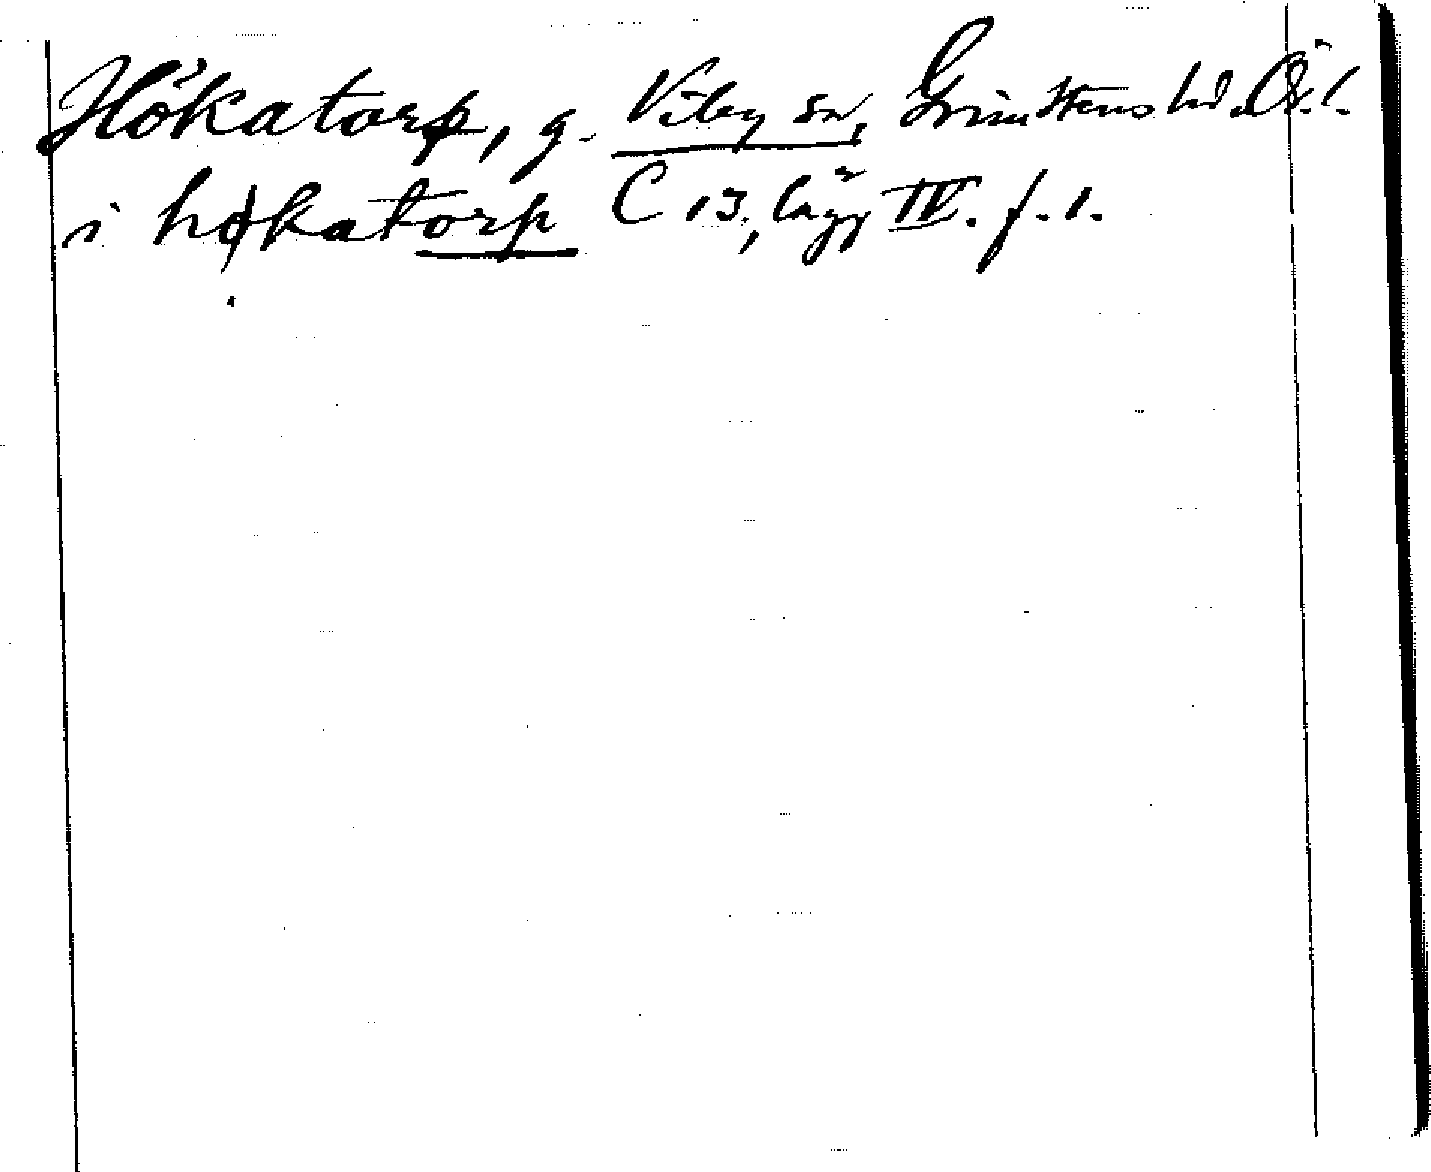 Hökatorp, g. Viby sn, Grimstens hd. Ör. l.
i høkatorp C 13, lägg IV. f. 1.